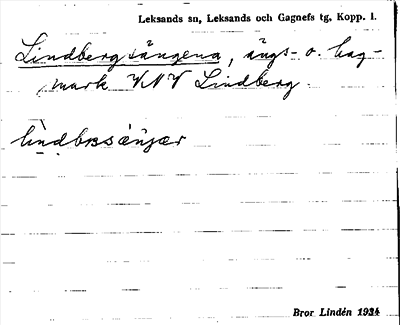 Leksands sn, Leksands och Gagnefs tg, Kopp. l.
Lindbergsängena, ängs- o. hag-
mark VNV Lindberg.
lìndbæsǟŋær
Bror Lindén 1934